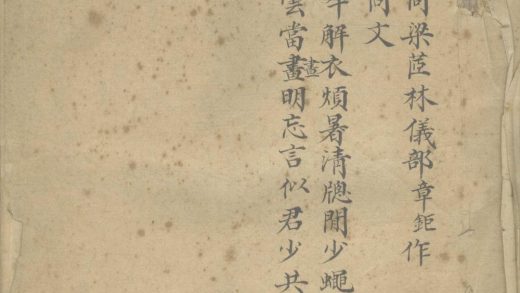 同梁茝林儀部章鉅作
文
解衣煩暑清牕閒少蠅
雲當畫晝明忘言似君少共